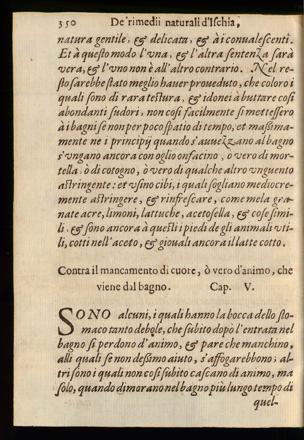 350 De' rimedii naturali d'Ischia,
natura gentile, & delicata, & ài conualescenti.
Et à questo modo l'vna, & l'altra sentenza sarà
vera, e l'vno non è all'altro contrario. Nel re-
sto sarebbe stato meglio hauer proueduto, che coloro i
quali sono di rara testura, & idonei à buttare così
abondanti sudori, non così facilmente si mettessero
à i bagni se non per poco spatio di tempo, et massima-
mente ne i principij quando s'auuezzano al bagno
s'vngano ancora con oglio onfacino, ò vero di mor-
tella, ò di cotogno, ò vero di qualche altro vnguento
astringente: et vsino cibi, i quali sogliano mediocre-
mente astringere, & rinfrescare, come mela gra-
nate acre, limoni, lattuche, acetosella, & cose simi-
li, & sono ancora à questi i piedi de gli animali vti-
li, cotti nell'aceto, & giouali ancora il latte cotto.
Contra il mancamento di cuore, ò vero d'animo, che
viene dal bagno. Cap. V.
SONO alcuni, i quali hanno la bocca dello sto-
maco tanto debole, che subito dopò l'entrata nel
bagno si perdono d'animo, & pare che manchino,
alli quali se non dessimo aiuto, s'affogarebbono; al-
tri sono i quali non così subito cascano di animo, ma
solo, quando dimorano nel bagno più lungo tempo di
quel-